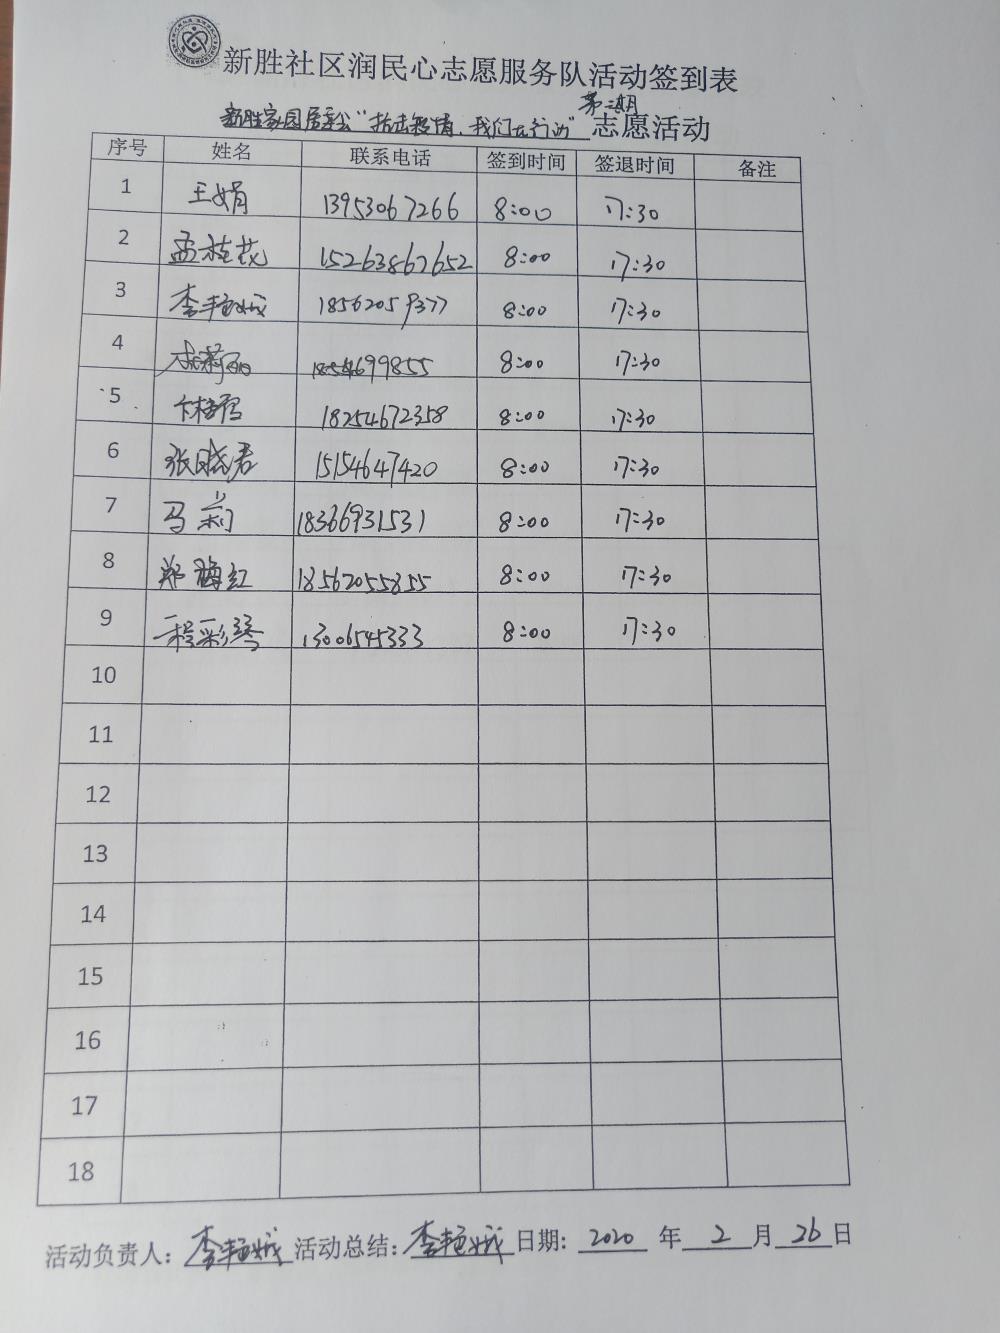 新胜社区润民心志愿服务队活动签到表
第二期
新胜家园居委会"抗击疫情,我们在行动"志愿活动
序号 姓名 联系电话 签到时间 签退时间 备注
1 王娟 13953067266 8:00 17:30
2 孟桂花 15263867652 8:00 17:30
3 李艳娥 18562059377 8:00 17:30
4 8:00 17:30
5 18254672358 8:00 17:30
6 张晓君 15154647420 8:00 17:30
7 马莉 18366931531 8:00 17:30
8 郑梅红 18562055855 8:00 17:30
9 程彩琴 13006545333 8:00 17:30
10
11
12
13
14
15
16
17
18
活动负责人:李艳娥 活动总结:李艳娥 日期:2020 年 2 月 26 日